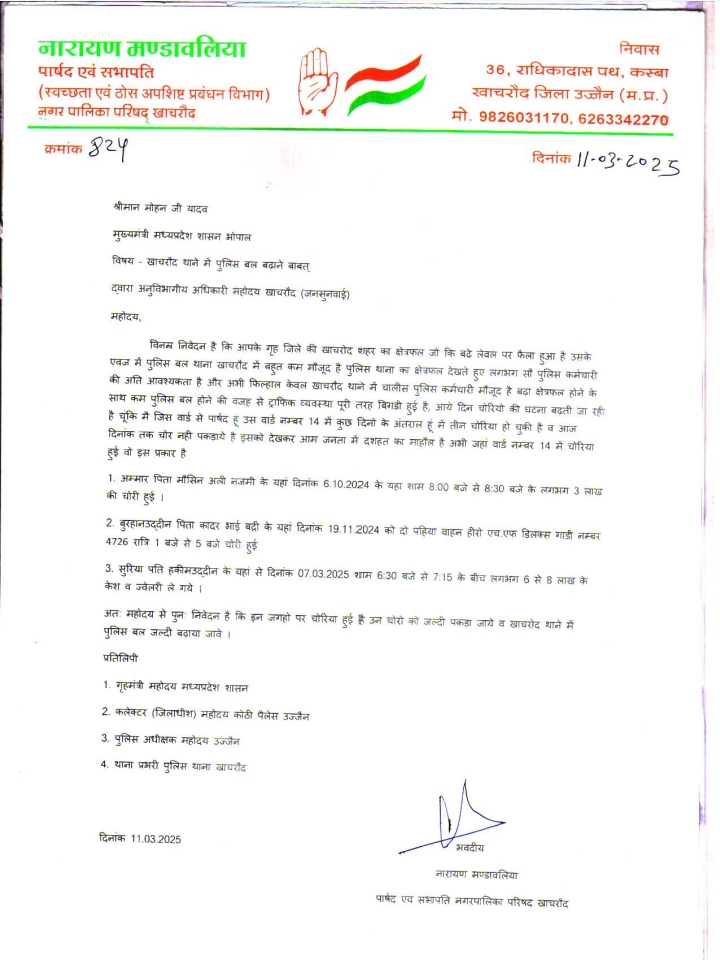 नारायण मण्डावलिया
पार्षद एवं सभापति
(स्वच्छता एवं ठोस अपशिष्ट प्रवंधन विभाग)
नगर पालिका परिषद् खाचरौद
निवास
36, राधिकादास पथ, कस्बा
खाचरौद जिला उज्जैन (म.प्र.)
मो. 9826031170, 6263342270
क्रमांक 824
दिनांक 11-03-2025
श्रीमान मोहन जी यादव
मुख्यमंत्री मध्यप्रदेश शासन भोपाल
विषय - खाचरौद थाने में पुलिस बल बढाने बाबत्
द्वारा अनुविभागीय अधिकारी महोदय खाचरौद (जनसुनवाई)
महोदय,
विनम्र निवेदन है कि आपके गृह जिले की खाचरोद शहर का क्षेत्रफल जो कि बढे लेवल पर फैला हुआ है उसके
एवज में पुलिस बल थाना खाचरौद में बहुत कम मौजूद है पुलिस थाना का क्षेत्रफल देखते हुए लगभग सौ पुलिस कर्मचारी
की अति आवश्यकता है और अभी फिल्हाल केवल खाचरौद थाने में चालीस पुलिस कर्मचारी मौजूद है बढा क्षेत्रफल होने के
साथ कम पुलिस बल होने की वजह से ट्राफिक व्यवस्था पूरी तरह बिगडी हुई है, आये दिन चोरियो की घटना बढती जा रही
है चूंकि मै जिस वार्ड से पार्षद हूं उस वार्ड नम्बर 14 में कुछ दिनो के अंतराल हूं में तीन चोरिया हो चुकी है व आज
दिनांक तक चोर नही पकडाये है इसको देखकर आम जनता में दशहत का माहौल है अभी जहां वार्ड नम्बर 14 में चोरिया
हुई वो इस प्रकार है
1. अम्मार पिता मौसिन अली नजमी के यहां दिनांक 6.10.2024 के यहा शाम 8:00 बजे से 8:30 बजे के लगभग 3 लाख
की चोरी हुई ।
2. बुरहानउद्दीन पिता कादर भाई बद्री के यहां दिनांक 19.11.2024 को दो पहिया वाहन हीरो एच.एफ डिलक्स गाडी नम्बर
4726 रात्रि 1 बजे से 5 बजे चोरी हुई
3. सुरिया पति हकीमउद्दीन के यहां से दिनांक 07.03.2025 शाम 6:30 बजे से 7:15 के बीच लगभग 6 से 8 लाख के
केश व ज्वेलरी ले गये ।
अतः महोदय से पुनः निवेदन है कि इन जगहो पर चोरिया हुई है उन चोरो को जल्दी पकड़ा जाये व खाचरोद थाने में
पुलिस बल जल्दी बढाया जावे ।
प्रतिलिपी
1. गृहमंत्री महोदय मध्यप्रदेश शासन
2. कलेक्टर (जिलाधीश) महोदय कोठी पैलेस उज्जैन
3. पुलिस अधीक्षक महोदय उज्जैन
4. थाना प्रभरी पुलिस थाना खाचरौद
दिनांक 11.03.2025
भवदीय
नारायण मण्डावलिया
पार्षद एव सभापति नगरपालिका परिषद खाचरौद